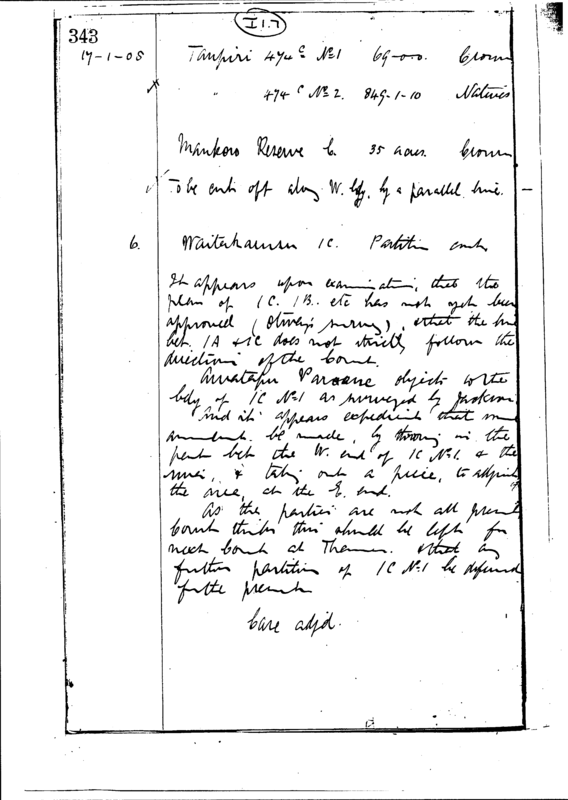 I 1.7
343
17-1-08 Taupiri 474 C No 1 69-0-0. Crown
" 474 C No 2. 849-1-10 Natives
X
Reserve C. 35 acres. Crown
To be cut off along W. bdy. by a parallel line.
6. 1C. Partition
It appears upon examination, that the
plan of 1C. 1B. etc has not yet been
approved (survey), & that the line
bet. 1A & 1C does not strictly follow the
directions of the Court.
objects to the
bdy of 1C No 1 as surveyed by Jackson
And it appears expedient that some
amendmt. be made, by throwing in the
part bet the W. end of 1C No 1. & the
river, & taking out a piece, to adjust
the area, at the E. end.
As the parties are not all present
Court thinks this should be left for
next Court at Thames. & that any
further partition of 1C No 1 be deferred
for the present
Case adjd.